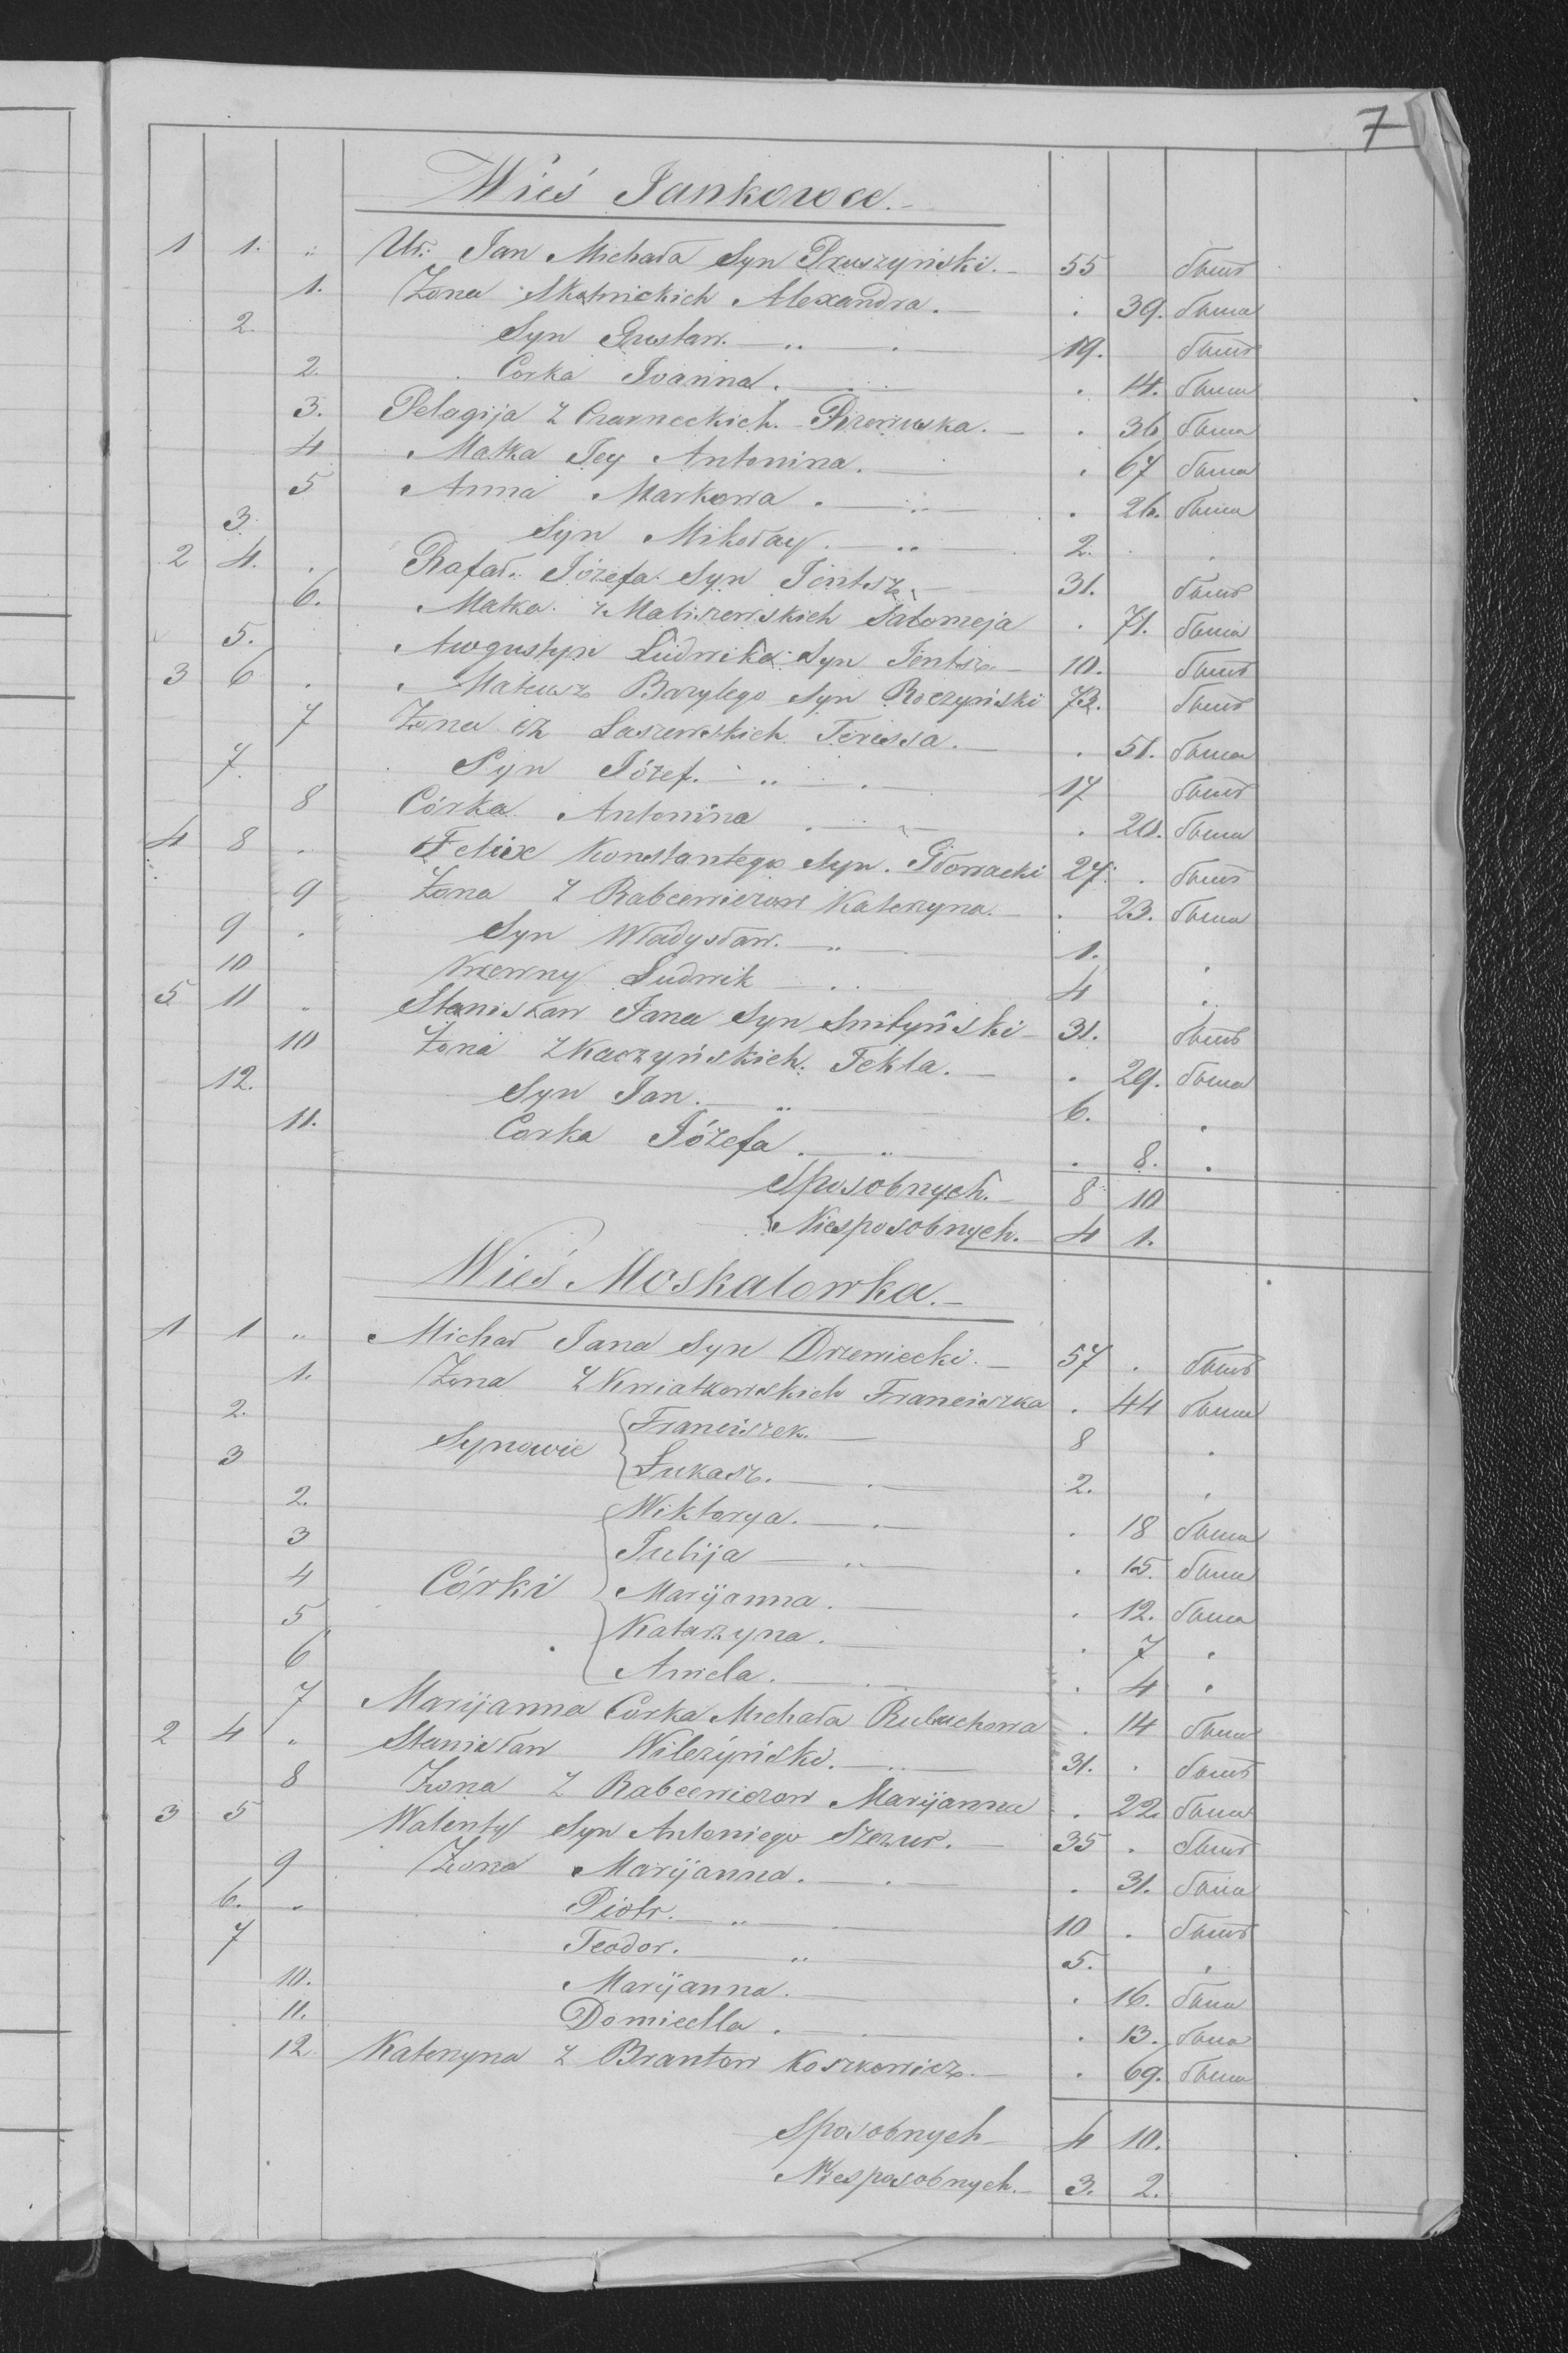 7
Wieś Jankowce.
1 1. " Ur: Jan Michała Syn Pruszyński. 55 былъ
1. Żona Skotnickich Alexandra. . 39. была
2. Syn Gustaw. 19. былъ
2. Corka Joanna. . 14. была
3. Pelagija z Czarneckich . 36 была
4 Matka Jey Antonina. . 67 была
5 Anna Markowa. . 26. была
3. Syn Mikołay. 2. .
2 4. . Rafał Józefa Syn Jentsz. 31. былъ
6. Matka z Maliszewskich Salomeja . 71. была
5. Awgustyn Ludwika Syn Jentsz 10. былъ
3 6 . Mateusz Bazylego Syn Roczyński 73. былъ
7 Żona z Laszewskich Teressa. . 51. была
7. Syn Józef. 17 былъ
8 Córka Antonina . 20. была
4 8 . Felix Konstantego Syn Głowacki 27. . былъ
9 Żona z Rabcewiczow Katerzyna. . 23. была
9 . Syn Władysław. 1. .
10 Krewny Ludwik 4 .
5 11 " Stanisław Jana Syn Smtyński 31. былъ
10 Żona z Kaczyńskich Tekla. . 29. была
12. Syn Jan. 6. .
11. Corka Józefa . 8. .
Sposobnych. 8 10
Niesposobnych. 4 1.
Wieś Moskalowka.
1 1 " Michał Jana Syn Drzewiecki. 57 . былъ
1. Żona z Kwiatkowskich Franciszka . 44 была
2. Synowie Franciszek. 8 .
3 Łukasz. 2. .
2. Wiktorya. . 18 была
3 Julija . 15. была
4 Córki Maryjanna. . 12. была
5 Katarzyna. . 7 .
6 Aniela. . 4 .
7 Maryjanna Corka Michała Rubuchowa . 14 была
2 4 " Stanisław Wilczyński. 31. . былъ
8 Żona z Rabcewiczow Maryjanna . 22. была
3 5 Walenty Syn Antoniego Szczur. 35 . былъ
9 Żona Maryjanna. . 31. была
6. " Piotr. 10 . былъ
7 Teodor. 5. .
10. Maryjanna. . 16. была
11. Domicella. . 13. была
12 Katerzyna z Brantow Koszkowicz. . 69. была
Sposobnych 4 10.
Niesposobnych. 3. 2.